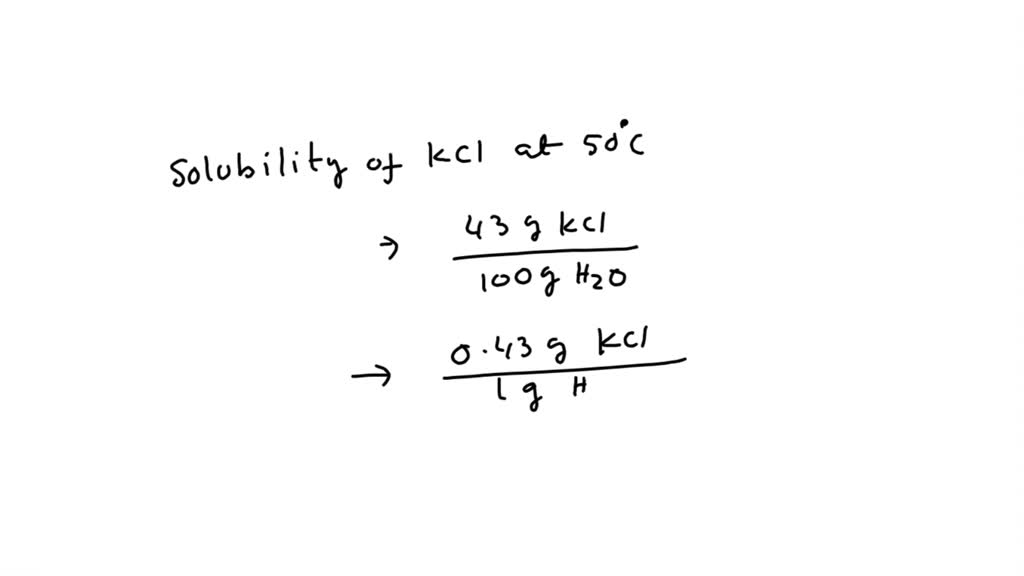 Solubility of KCl at 50°C
→ 43 g KCl
100 g H2O
→ 0.43 g KCl
1 g H